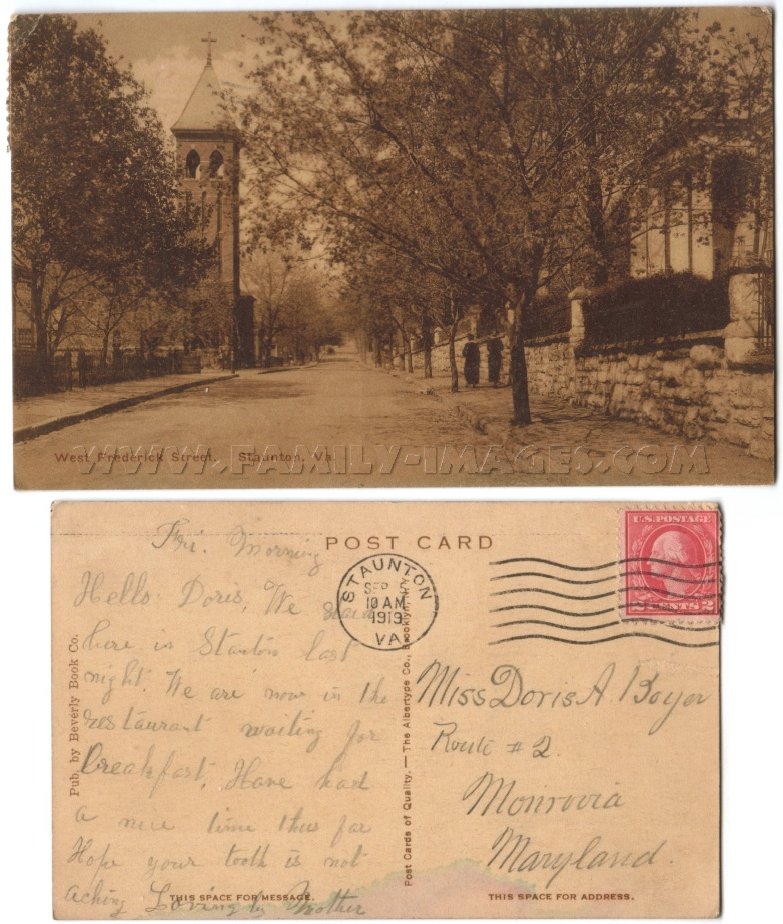 West Frederick Street. Staunton, Va.
WWW.FAMILY-IMAGES.COM
POST CARD
U.S. POSTAGE
2 CENTS 2
STAUNTON
SEP
10 AM
1919
VA
Fri. Morning
Hello Doris, We
here in Stanton last
night. We are now in the
restaurant waiting for
breakfast. Have had
a nice time thus far
Hope your tooth is not
aching Lovingly Mother
Miss Doris A Boyer
Route # 2.
Monrovia
Maryland.
Pub. by Beverly Book Co.
Post Cards of Quality.—The Albertype Co., Brooklyn, N.Y.
THIS SPACE FOR MESSAGE.
THIS SPACE FOR ADDRESS.